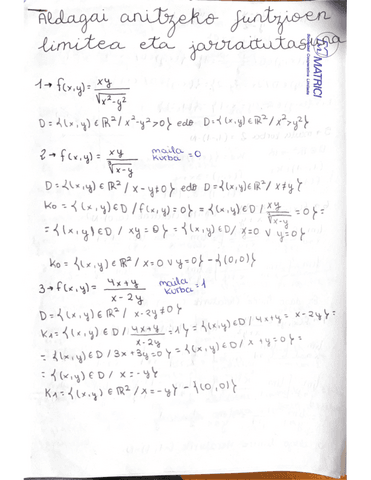 Aldagai anitzeko funtzioen
limitea eta jarraitutasuna
MATRICI
1→ f(x,y) = xy / √(x²-y²)
D = {(x,y) ∈ ℝ² / x²-y² > 0} edo D = {(x,y) ∈ ℝ² / x² > y²}
2→ f(x,y) = xy / ∛(x-y) maila kurba = 0
D = {(x,y) ∈ ℝ² / x-y ≠ 0} edo D = {(x,y) ∈ ℝ² / x ≠ y}
K0 = {(x,y) ∈ D / f(x,y) = 0} = {(x,y) ∈ D / xy / ∛(x-y) = 0} =
= {(x,y) ∈ D / xy = 0} = {(x,y) ∈ D / x=0 ∨ y=0}
K0 = {(x,y) ∈ ℝ² / x=0 ∨ y=0} - {(0,0)}
3→ f(x,y) = 4x+y / x-2y maila kurba = 1
D = {(x,y) ∈ ℝ² / x-2y ≠ 0}
K1 = {(x,y) ∈ D / 4x+y / x-2y = 1} = {(x,y) ∈ D / 4x+y = x-2y} =
= {(x,y) ∈ D / 3x+3y=0} = {(x,y) ∈ D / x+y=0} =
= {(x,y) ∈ D / x=-y}
K1 = {(x,y) ∈ ℝ² / x=-y} - {(0,0)}